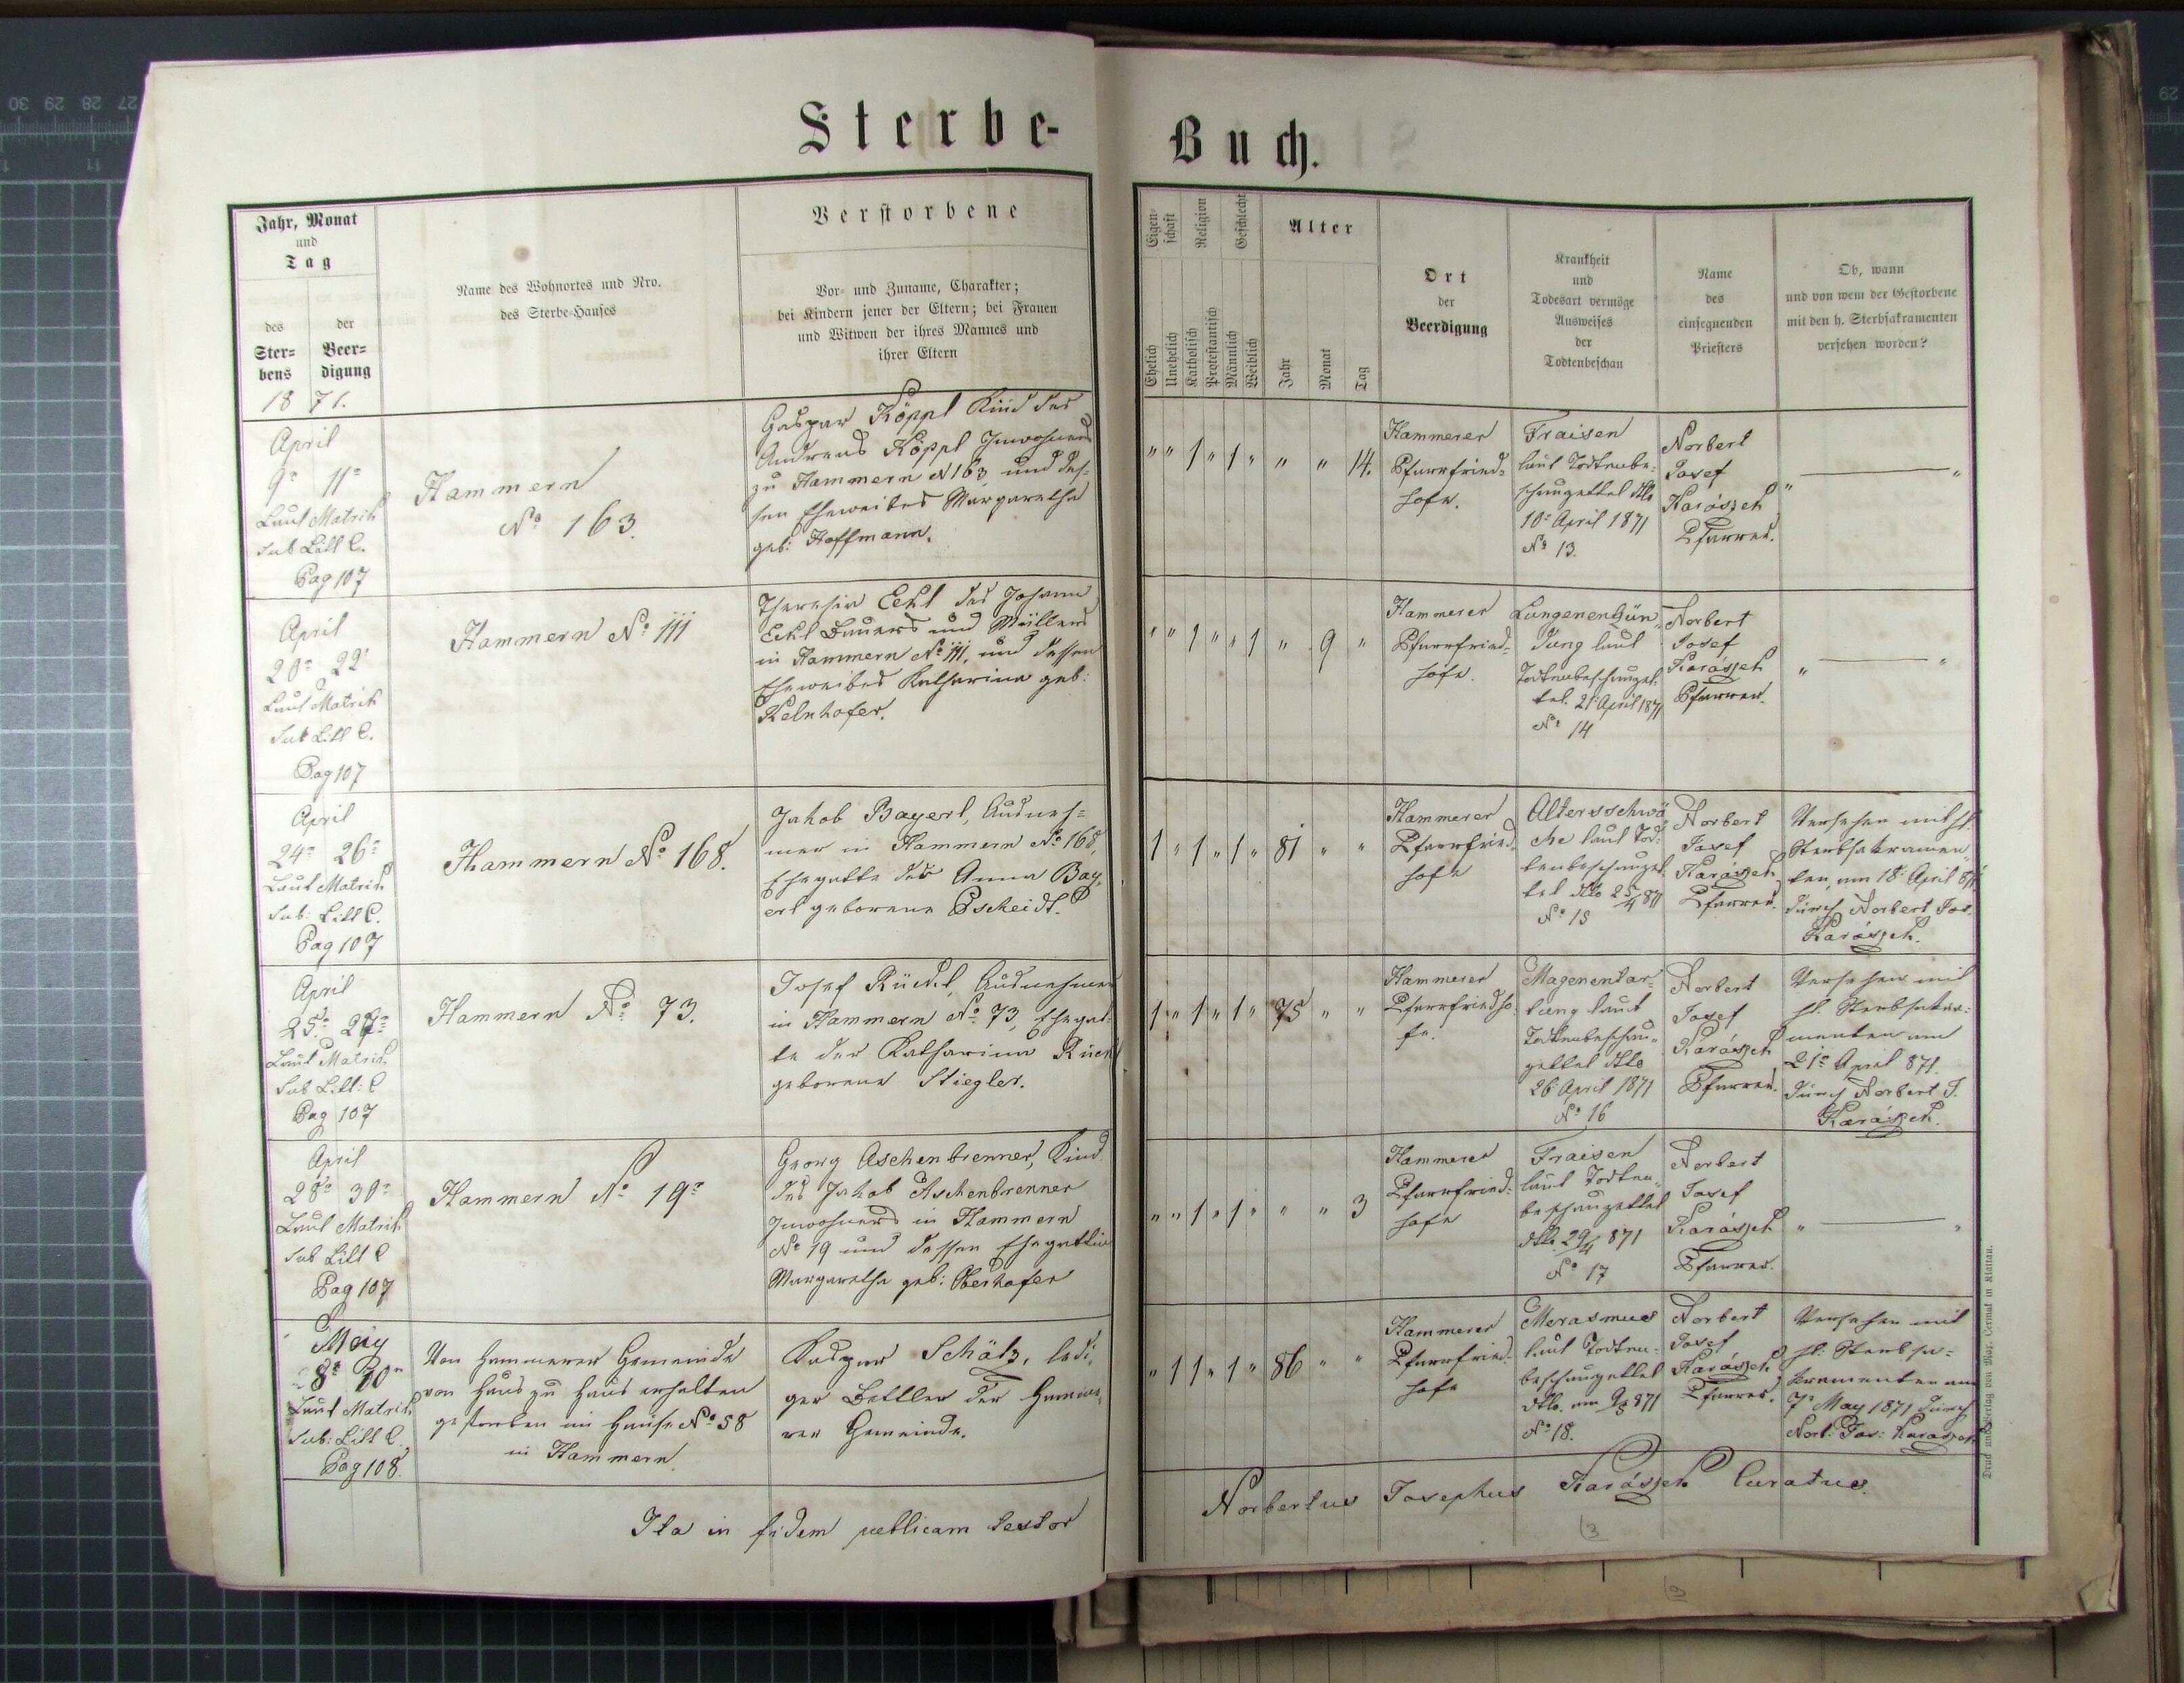 Sterbe-
Buch.
Jahr, Monat
und
Tag
des
Ster-
bens
der
Beer-
digung
1871.
Name des Wohnortes und Nro.
des Sterbe-Hauses
Verstorbene
Vor- und Zuname, Charakter;
bei Kindern jener der Eltern; bei Frauen
und Witwen der ihres Mannes und
ihrer Eltern
Eigen-
schaft
Religion
Geschlecht
Alter
Ehelich
Unehelich
Katholisch
Protestantisch
Männlich
Weiblich
Jahr
Monat
Tag
Ort
der
Beerdigung
Krankheit
und
Todesart vermöge
Ausweises
der
Todtenbeschau
Name
des
einsegnenden
Priesters
Ob, wann
und von wem der Gestorbene
mit den h. Sterbsakramenten
versehen worden?
April
9. 11.
Laut Matrik
sub Litt C.
Pag 107
Hammern
No 163.
Gaspar Köppl Kind des
Andreas Köppl Inwohners
zu Hammern N 163 und des-
sen Eheweibes Margaretha
geb: Hoffmann.
" " 1 " 1 " " " 14.
Hammerer
Pfarrfried-
hofe.
Fraisen
laut Todtenbe-
schauzettel dto
10. April 1871
No 13.
Norbert
Josef
Karásjek
Pfarrer.
" — "
April
20. 22.
Laut Matrik
sub Litt C.
Pag 107
Hammern No 111
Theresia Eckl des Johann
Eckl Bauers und Müllers
in Hammern No 111, und dessen
Eheweibes Katharina geb:
Kelnhofer.
" " 1 " " 1 " 9 "
Hammerer
Pfarrfried-
hofe.
Lungenenzün-
dung laut
Todtenbeschauzet-
tel. 21 April 1871
No 14
Norbert
Josef
Karásjek
Pfarrer.
" — "
April
24. 26.
Laut Matrik
sub: Litt C.
Pag 107
Hammern No 168.
Jakob Bayerl, Ausneh-
mer in Hammern No 168,
Ehegatte der Anna Bay-
erl geborene Pscheidl.
1 " 1 " 1 " 81 " "
Hammerer
Pfarrfried-
hofe
Altersschwä-
che laut Tod-
tenbeschauzet-
tel dto 25/4 871
No 15
Norbert
Josef
Karásjek
Pfarrer.
Versehen mit hl.
Sterbsakramen-
ten, am 18. April 871
durch Norbert Jos.
Karásjek.
April
25. 27.
Laut Matrik
sub Litt: C
Pag 107
Hammern No 73.
Josef Rückl, Ausnehmer
in Hammern No 73, Ehegat-
te der Katharina Rückl
geborene Stiegler.
1 " 1 " 1 " 75 " "
Hammerer
Pfarrfriedho-
fe.
Magenentar-
tung laut
Todtenbeschau-
zettel dto
26 April 1871
No 16
Norbert
Josef
Karásjek
Pfarrer.
Versehen mit
hl. Sterbsakra-
menten am
21. April 871.
durch Norbert J.
Karásjek.
April
28. 30.
Laut Matrik
sub Litt C
Pag 107
Hammern No 19.
Georg Aschenbrenner, Kind
des Jakob Aschenbrenner
Inwohners in Hammern
No 19 und dessen Ehegattin
Margaretha geb: Oberhofer
" " 1 " 1 " " " 3
Hammerer
Pfarrfried-
hofe
Fraisen
laut Todten-
beschauzettel
dto. 29/4 871
No 17
Norbert
Josef
Karásjek
Pfarrer.
" — "
May
8. 10.
Laut Matrik
sub: Litt C.
Pag 108.
Von Hammerer Gemeinde
von Haus zu Haus erhalten
gestorben im Hause No 58
in Hammern
Kaspar Schätz, ledi-
ger Bettler der Hamme-
rer Gemeinde.
" 1 1 " 1 " 86 " "
Hammerer
Pfarrfried-
hofe
Merasmus
laut Todten-
beschauzettel
dto. am 9/5 871
No 18.
Norbert
Josef
Karásjek
Pfarrer.
Versehen mit
hl: Sterbsa-
kramenten am
7. May 1871 durch
Norb: Jos: Karásjek
Ita in fidem publicam testor
Norbertus Josephus Karásjek Curatus.
Druck und Verlag von Max. Cermak in Klattau.